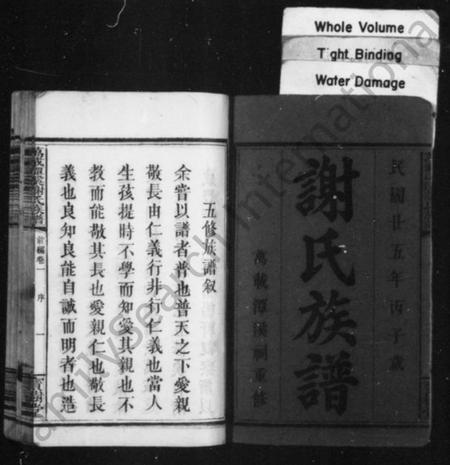 Whole Volume
Tight Binding
Water Damage
民國廿五年丙子歲
謝氏族譜
萬載潭溪祠重修
五修族譜叙
余嘗以譜者普也普天之下愛親
敬長由仁義行非行仁義也當人
生孩提時不學而知愛其親也不
教而能敬其長也愛親仁也敬長
義也良知良能自誠而明者也造
首編卷一 序 一
FamilySearch International